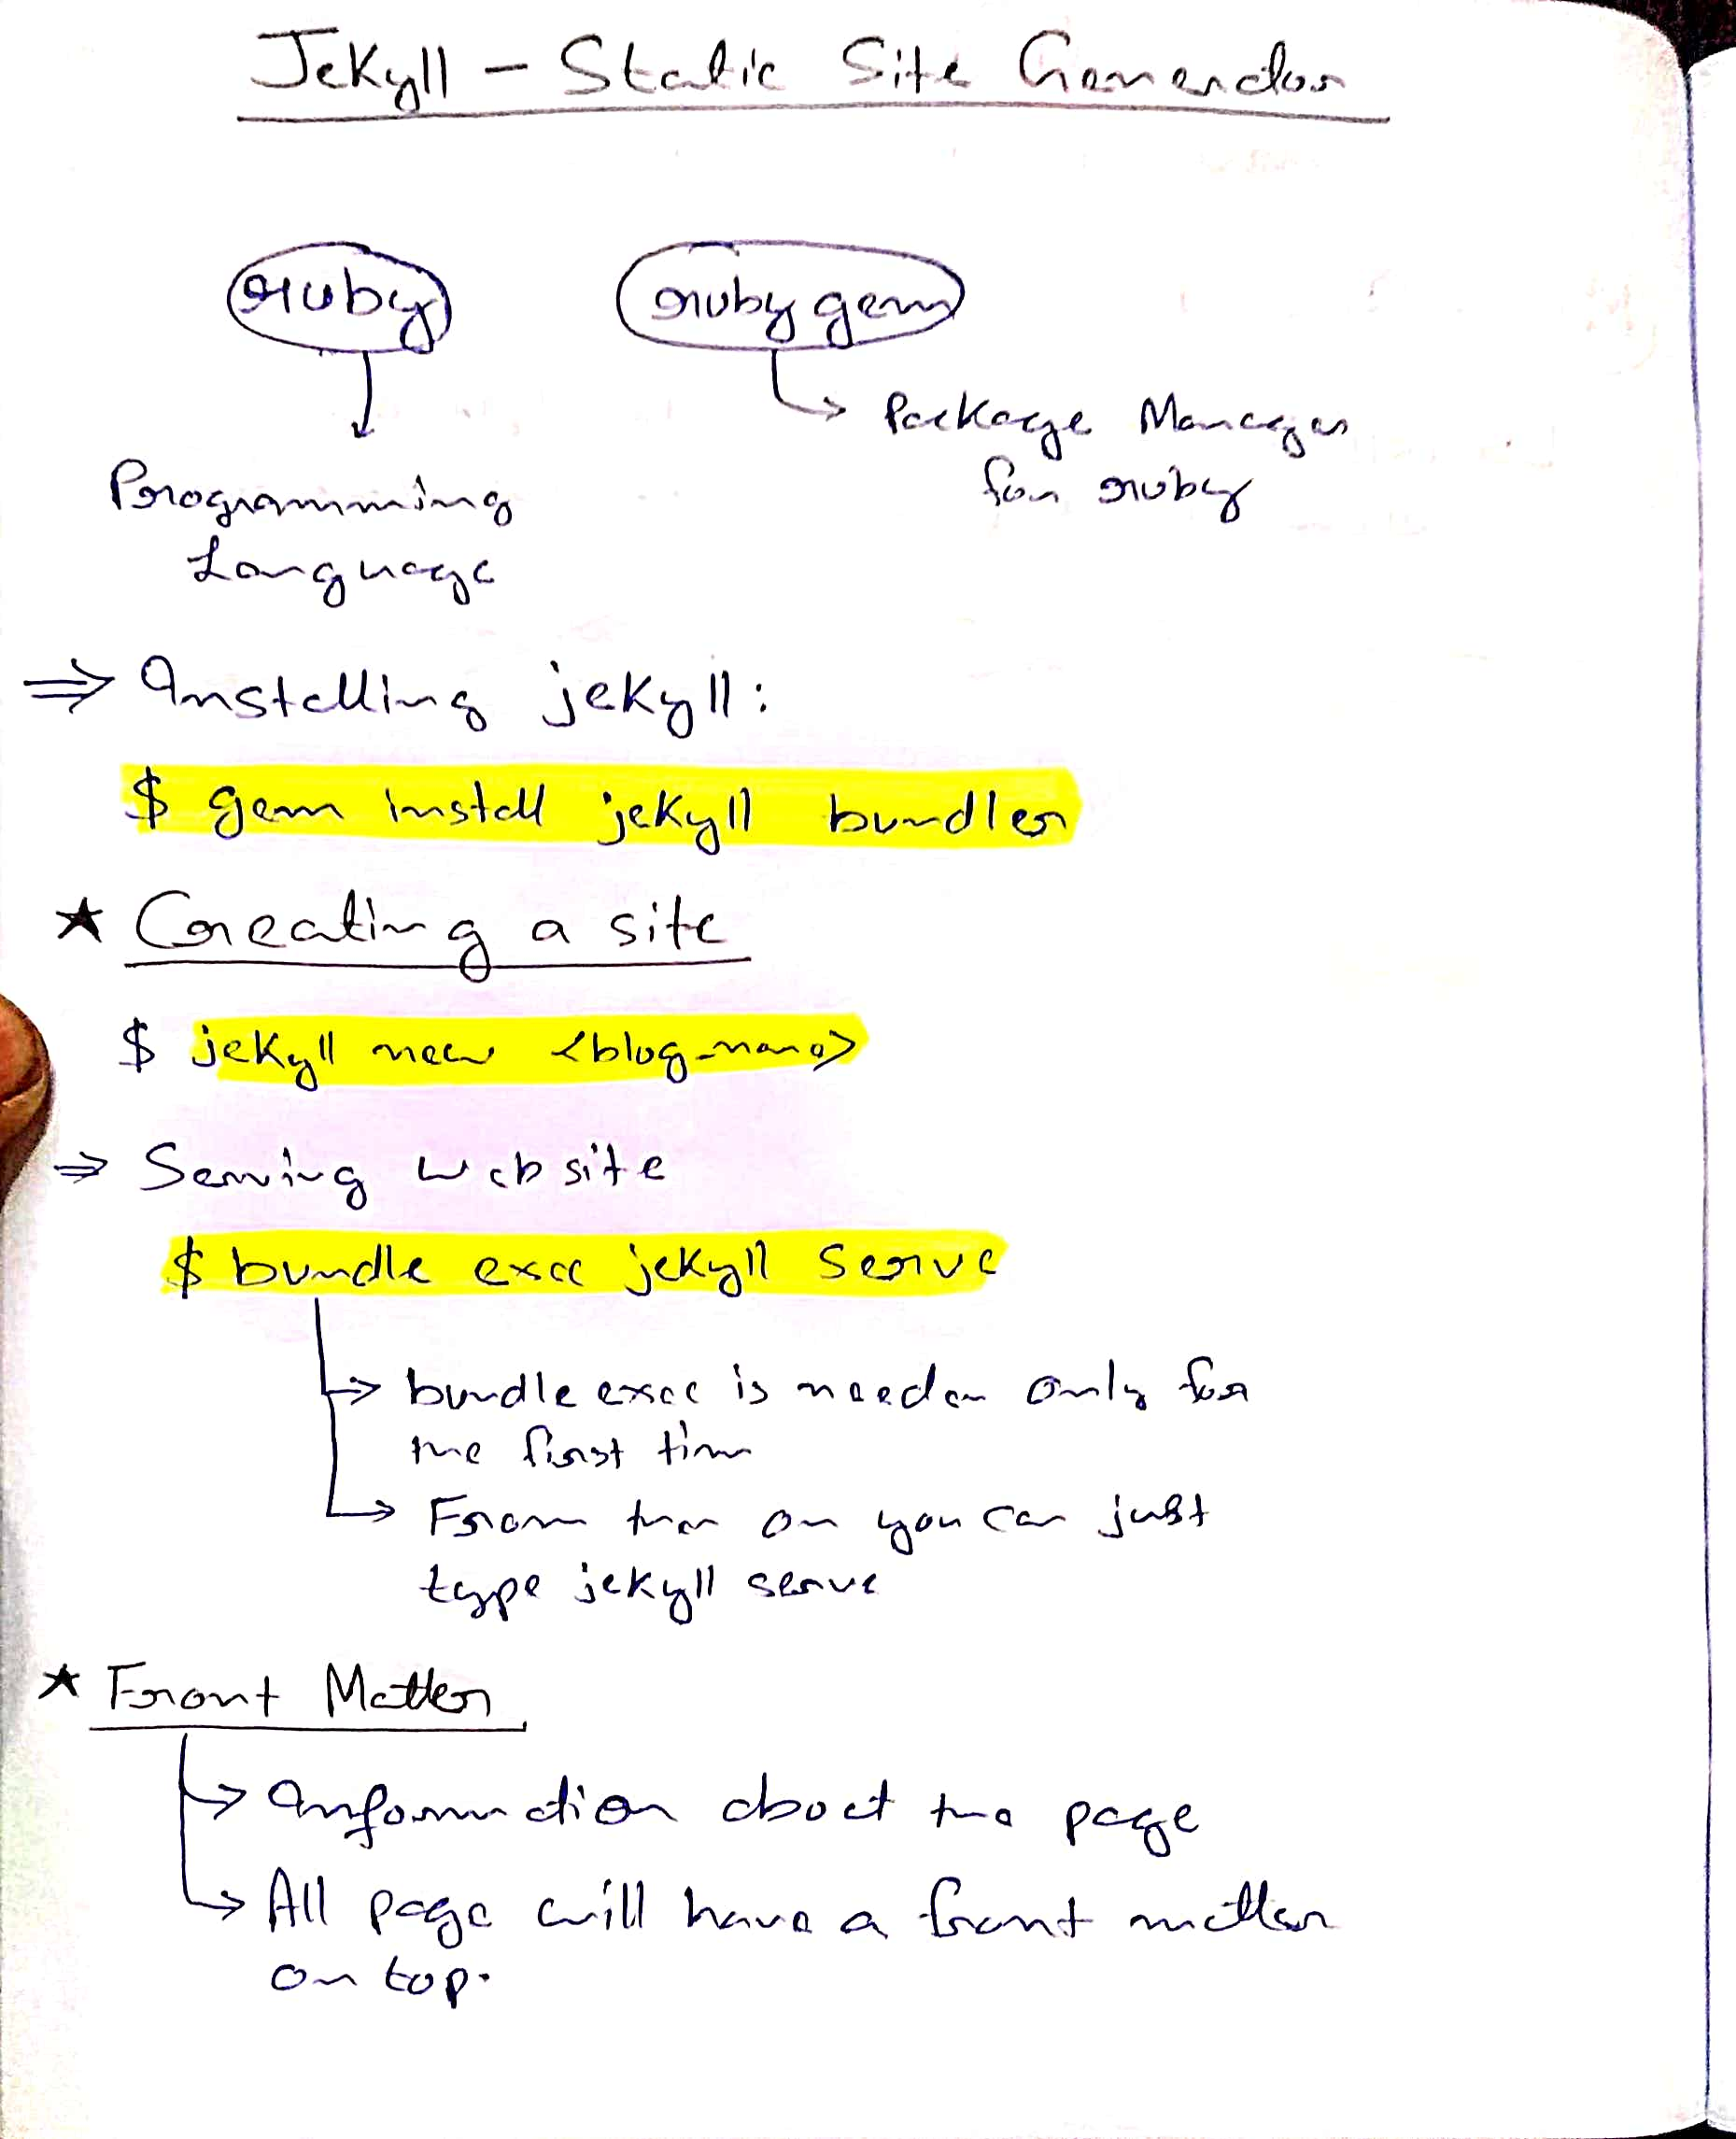 Jekyll - Static Site Generator
ruby
ruby gem
Package Manager
for ruby
Programming
Language
⇒ Installing jekyll:
$ gem install jekyll bundler
★ Creating a site
$ jekyll new <blog-name>
⇒ Serving website
$ bundle exec jekyll serve
→ bundle exec is needed only for
the first time
→ From then on you can just
type jekyll serve
★ Front Matter
→ Information about the page
→ All page will have a front matter
on top.